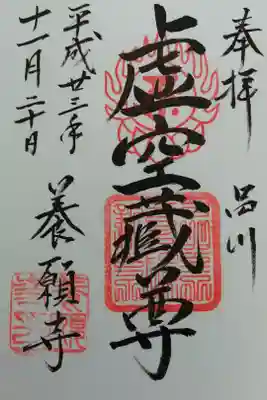 奉拝 品川
虚空蔵尊
平成廿三年
十一月二十日
養願寺